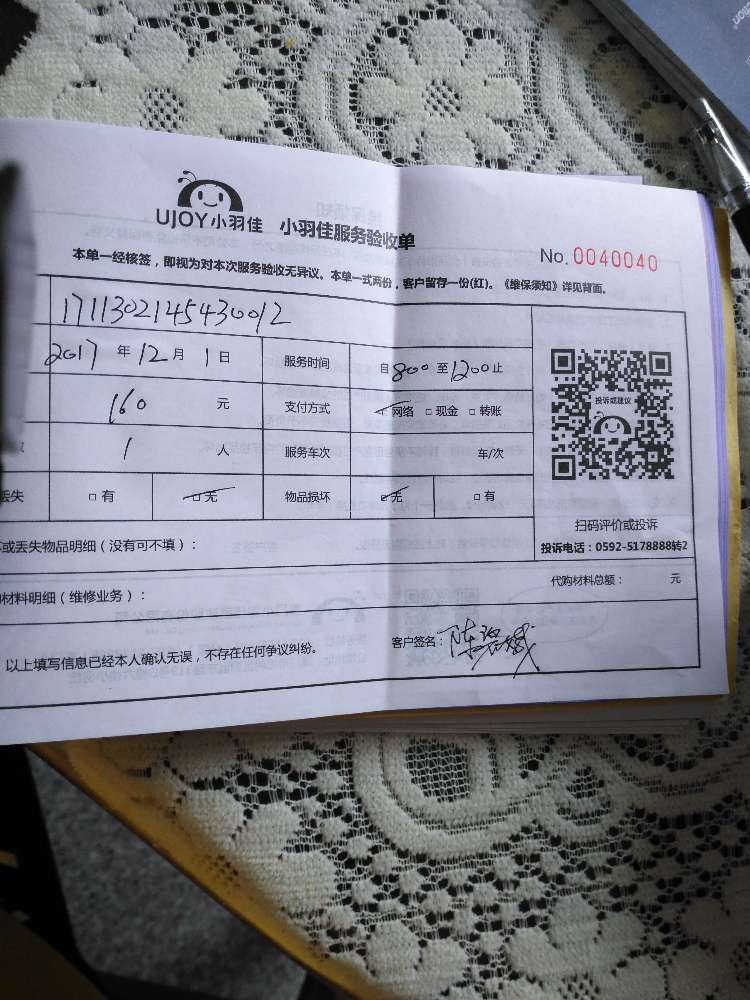 UJOY小羽佳 小羽佳服务验收单
No. 0040040
本单一经核签，即视为对本次服务验收无异议。本单一式两份，客户留存一份(红)。《维保须知》详见背面。
1711302145430012
2017 年 12 月 1 日 服务时间 自 800 至 1200 止
160 元 支付方式 网络 □ 现金 □ 转账
1 人 服务车次 车/次
丢失 □ 有 □ 无 物品损坏 □ 无 □ 有
投诉或建议
扫码评价或投诉
投诉电话：0592-5178888转2
或丢失物品明细（没有可不填）：
材料明细（维修业务）：
代购材料总额： 元
以上填写信息已经本人确认无误，不存在任何争议纠纷。 客户签名：